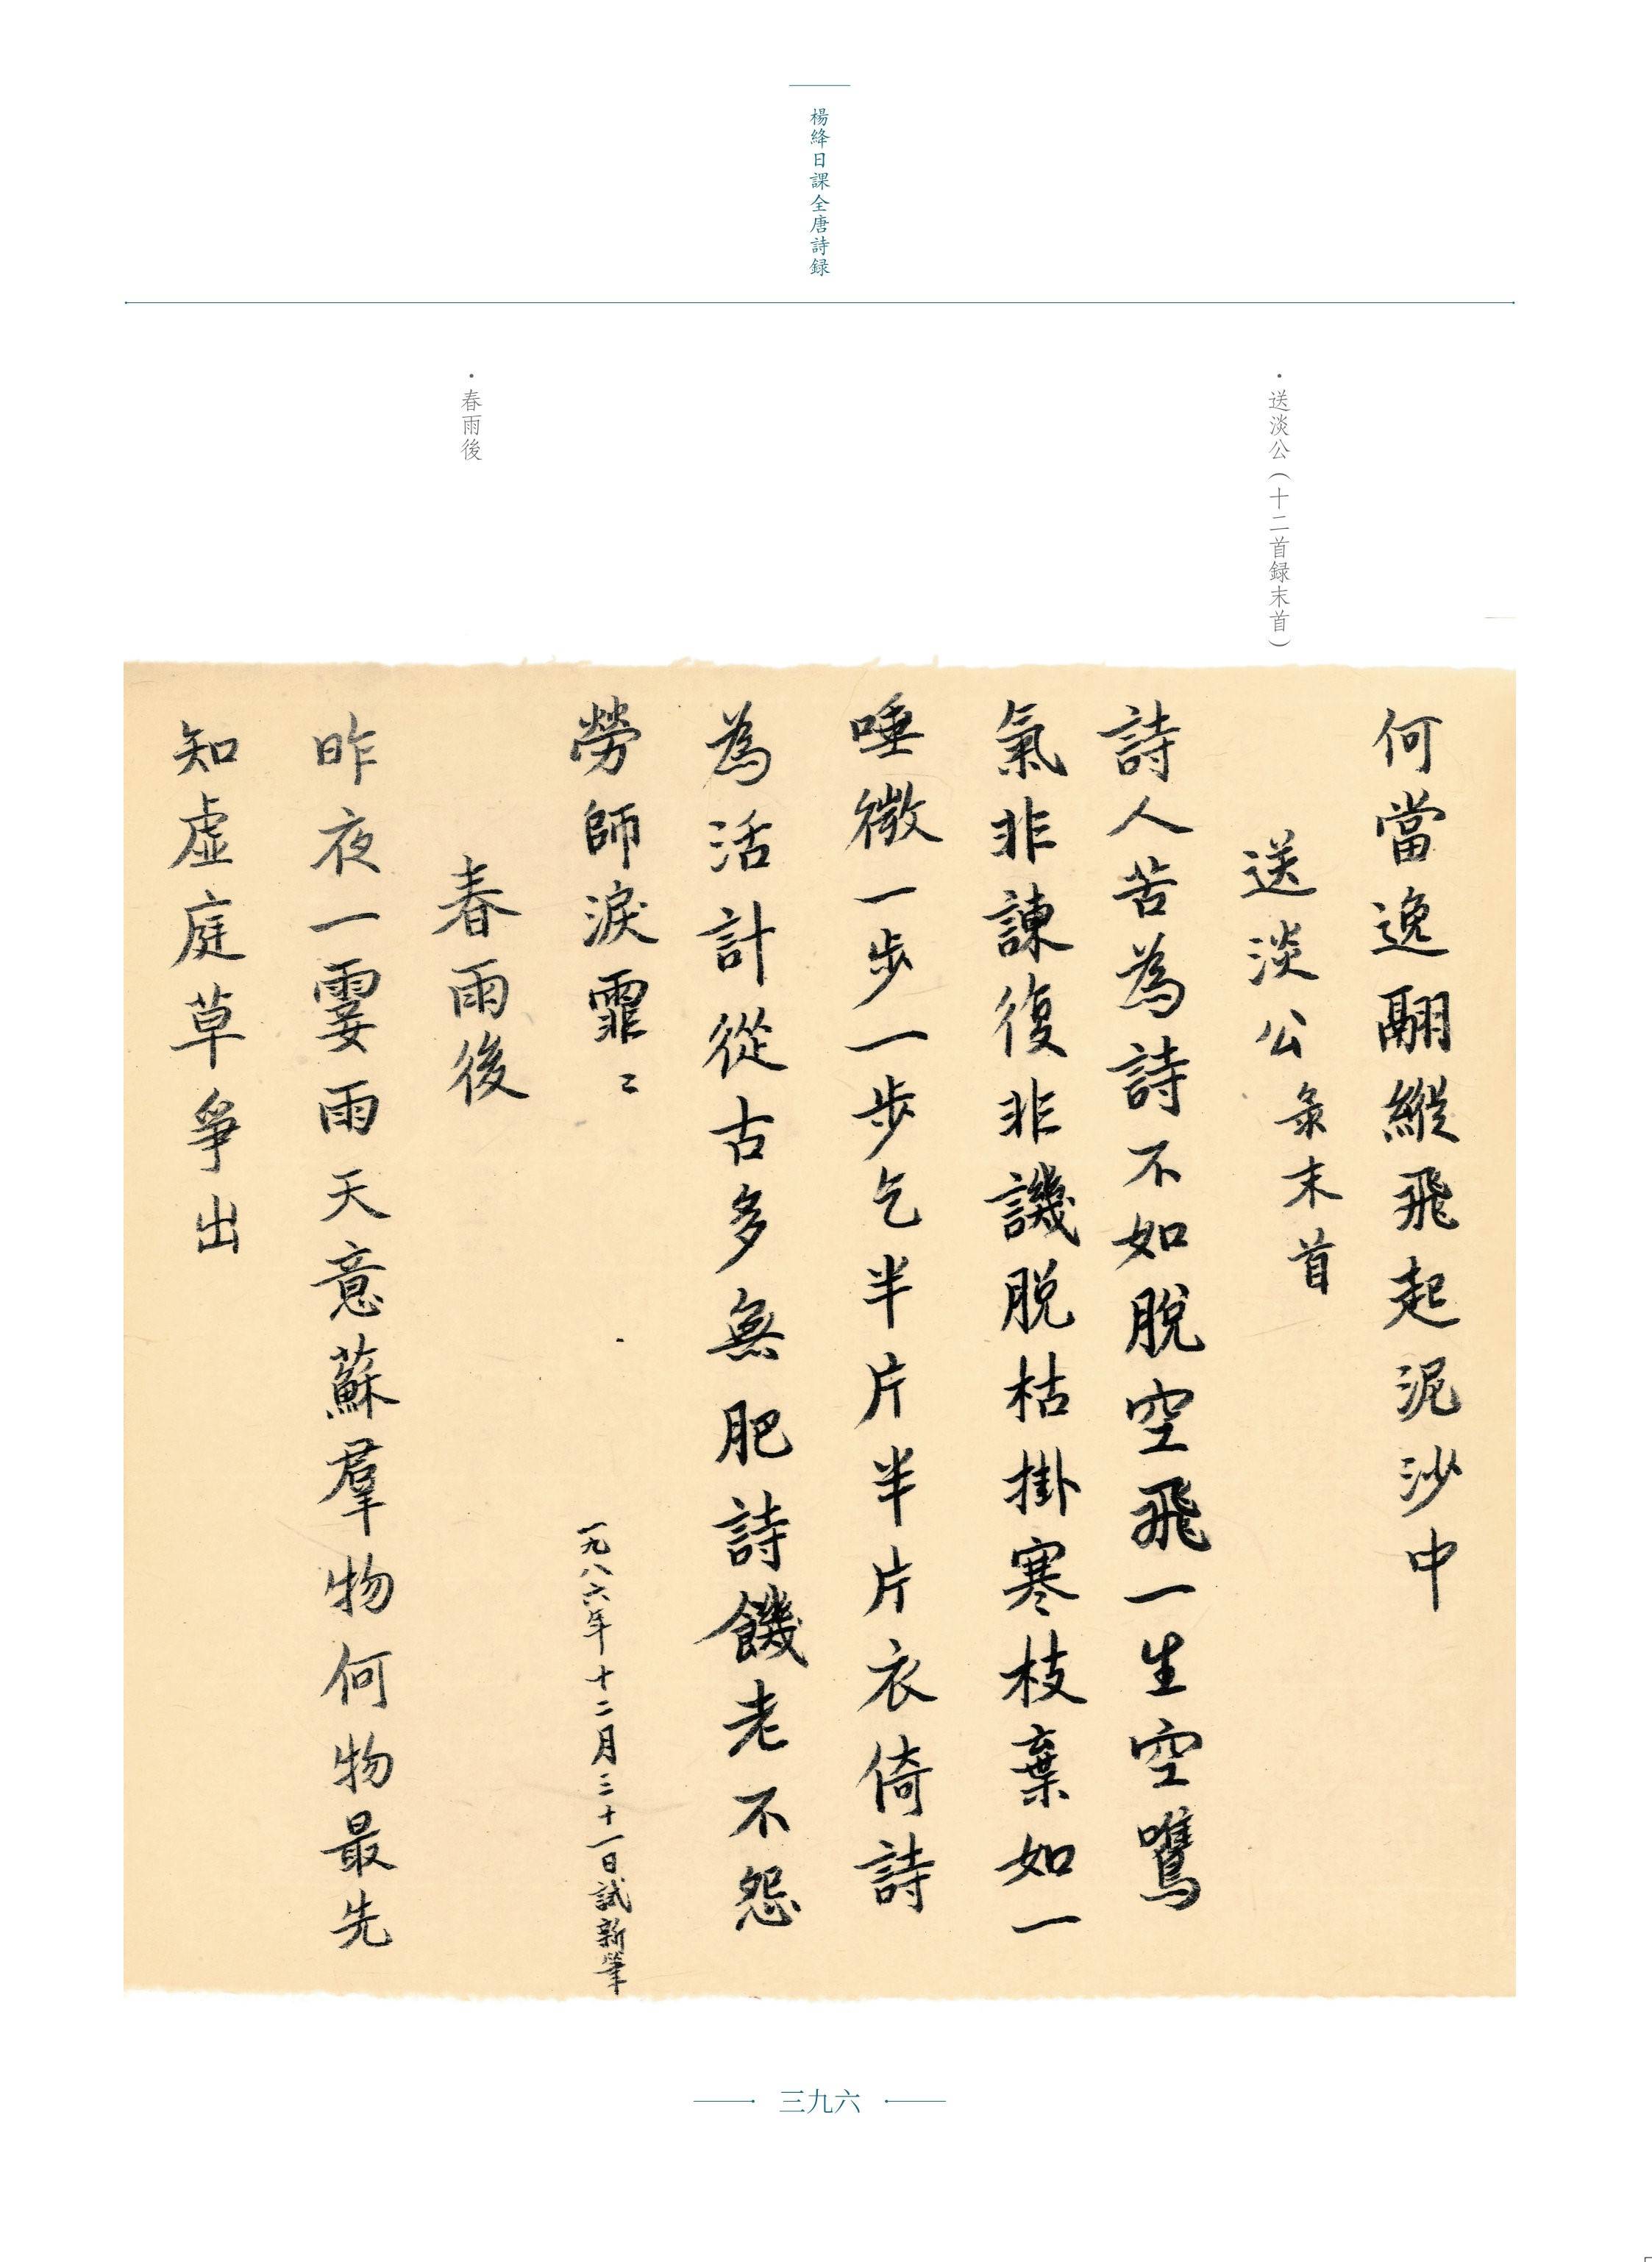 楊絳日課全唐詩録
·送淡公(十二首録末首)
·春雨後
何當逸翮縱飛起泥沙中
送淡公彔末首
詩人苦為詩不如脫空飛一生空鷕
氣非諫復非譏脱枯掛寒枝棄如一
唾微一步一步乞半片半片衣倚詩
為活計從古多無肥詩饑老不怨
勞師淚霏〻
一九八六年十二月三十一日試新筆
春雨後
昨夜一霎雨天意蘇羣物何物最先
知虛庭草爭出
三九六